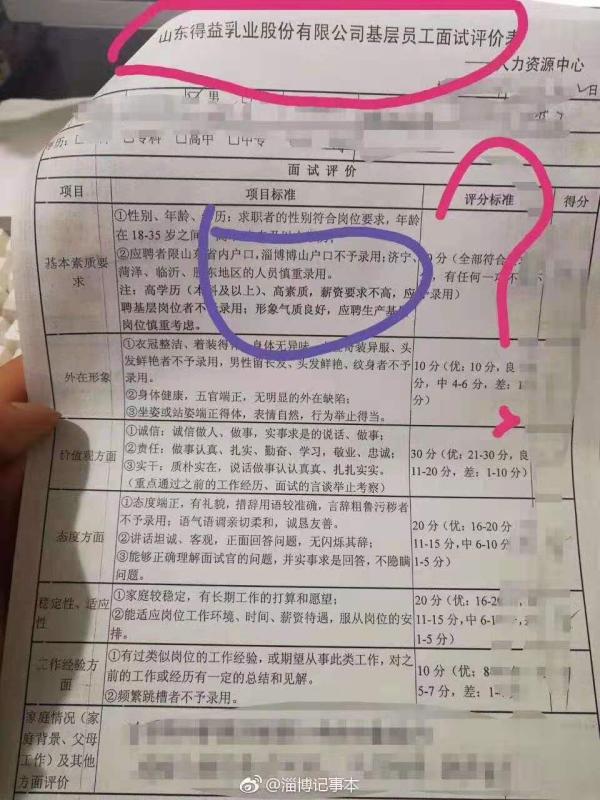 山东得益乳业股份有限公司基层员工面试评价表
人力资源中心
男
日
历： 专科 □高中 □中专
面试评价
项目 项目标准 评分标准 得分
基本素质要求
①性别、年龄、 历：求职者的性别符合岗位要求，年龄
在 18-35 岁之
②应聘者限山东省内户口，淄博博山户口不予录用；济宁、
菏泽、临沂、胶东地区的人员慎重录用。
注：高学历（本科及以上）、高素质，薪资要求不高，应
聘基层岗位者不予录用；形象气质良好，应聘生产基
岗位慎重考虑。
分（全部符合
，有任何一项不
录用）
外在形象
①衣冠整洁、着装得 身体无异味 奇装异服、头
发鲜艳者不予录用，男性留长发、头发鲜艳、纹身者不予
录用。
②身体健康，五官端正，无明显的外在缺陷；
③坐姿或站姿端正得体，表情自然，行为举止得当。
10 分（优：10 分，良
分，中 4-6 分，差：1
分）
价值观方面
①诚信：诚信做人、做事，实事求是的说话、做事；
②责任：做事认真、扎实、勤奋、学习，敬业、忠诚；
③实干：质朴实在，说话做事认认真真、扎扎实实。
（重点通过之前的工作经历、面试的言谈举止考察）
30 分（优：21-30 分，良
11-20 分，差：1-10 分）
态度方面
①态度端正，有礼貌，措辞用语较准确，言辞粗鲁污秽者
不予录用；语气语调亲切柔和，诚恳友善。
②讲话坦诚、客观，正面回答问题，无闪烁其辞；
③能够正确理解面试官的问题，并实事求是回答，不隐瞒
问题。
20 分（优：16-20 分
11-15 分，中 6-10 分
1-5 分）
稳定性、适应性
①家庭较稳定，有长期工作的打算和愿望；
②能适应岗位工作环境、时间、薪资待遇，服从岗位的安
排。
20 分（优：16-20
11-15 分，中 6-1 分
1-5 分）
工作经验方面
①有过类似岗位的工作经验，或期望从事此类工作，对之
前的工作或经历有一定的总结和见解。
②频繁跳槽者不予录用。
10 分（优：8-
5-7 分，差：1-
分）
家庭情况（家
庭背景、父母
工作）及其他
方面评价
@淄博记事本